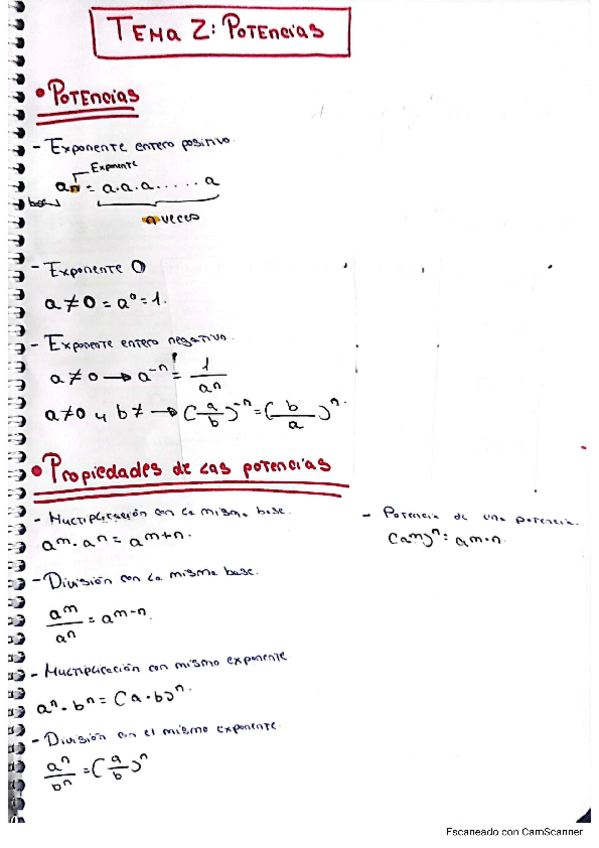 TEMA 2: POTENCIAS
• POTENCIAS
- Exponente entero positivo.
Exponente
aⁿ = a.a.a.....a
base
a veces
- Exponente 0
a ≠ 0 = a⁰ = 1.
- Exponente entero negativo.
a ≠ 0 → a⁻ⁿ = 1/aⁿ
a ≠ 0 y b ≠ → (a/b)⁻ⁿ = (b/a)ⁿ.
• Propiedades de las potencias
- Multiplicación con la misma base.
aᵐ . aⁿ = aᵐ⁺ⁿ.
- División con la misma base.
aᵐ/aⁿ = aᵐ⁻ⁿ.
- Multiplicación con mismo exponente
aⁿ . bⁿ = (a . b)ⁿ.
- División con el mismo exponente.
aⁿ/bⁿ = (a/b)ⁿ
- Potencia de una potencia.
(aᵐ)ⁿ = aᵐ·ⁿ.
Escaneado con CamScanner